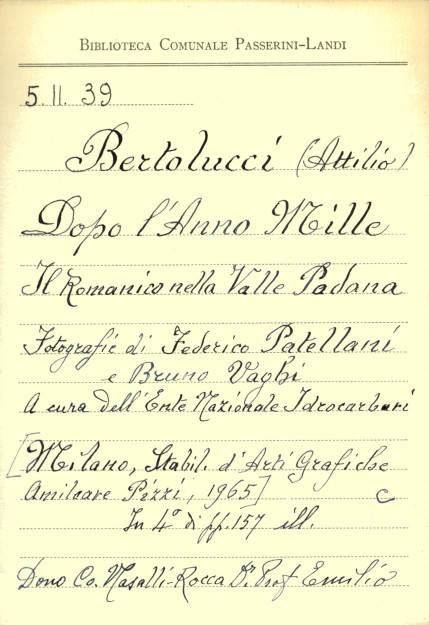 BIBLIOTECA COMUNALE PASSERINI-LANDI
5. II. 39
Bertolucci (Attilio)
Dopo l'Anno Mille
Il Romanico nella Valle Padana
Fotografie di Federico Patellani
e Bruno Vaghi
A cura dell'Ente Nazionale Idrocarburi
[Milano, Stabil. d'Arti Grafiche
Amilcare Pizzi, 1965] C
In 4° di pp. 157 ill.
Dono Co. Nasalli-Rocca D. Prof Emilio